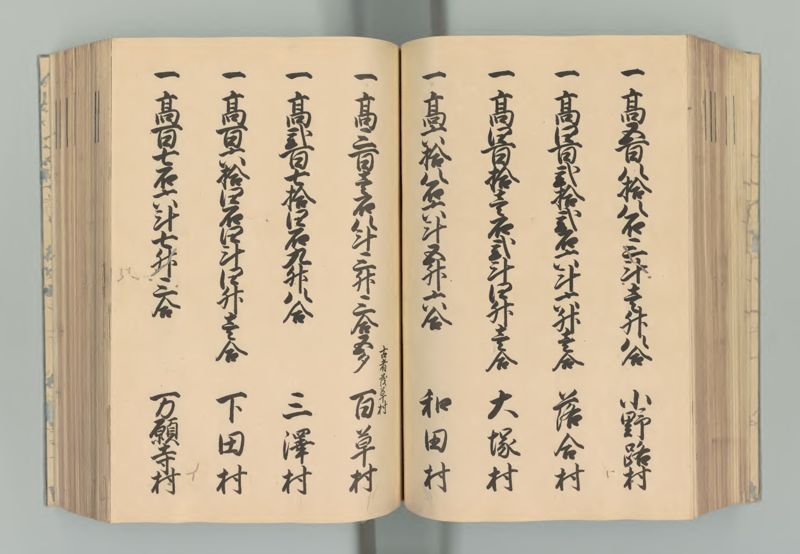 一 高五百八拾八石三斗壱升八合 小野路村
一 高四百弐拾弐石六斗六升壱合 落合村
一 高四百拾壱石弐斗四升壱合 大塚村
一 高六拾八石六斗五升六合 和田村
古者茂草村
一 高三百壱石八斗三升三合五夕 百草村
一 高弐百七拾四石九升八合 三澤村
一 高百六拾四石四斗四升壱合 下田村
一 高百七石六斗七升三合 万願寺村